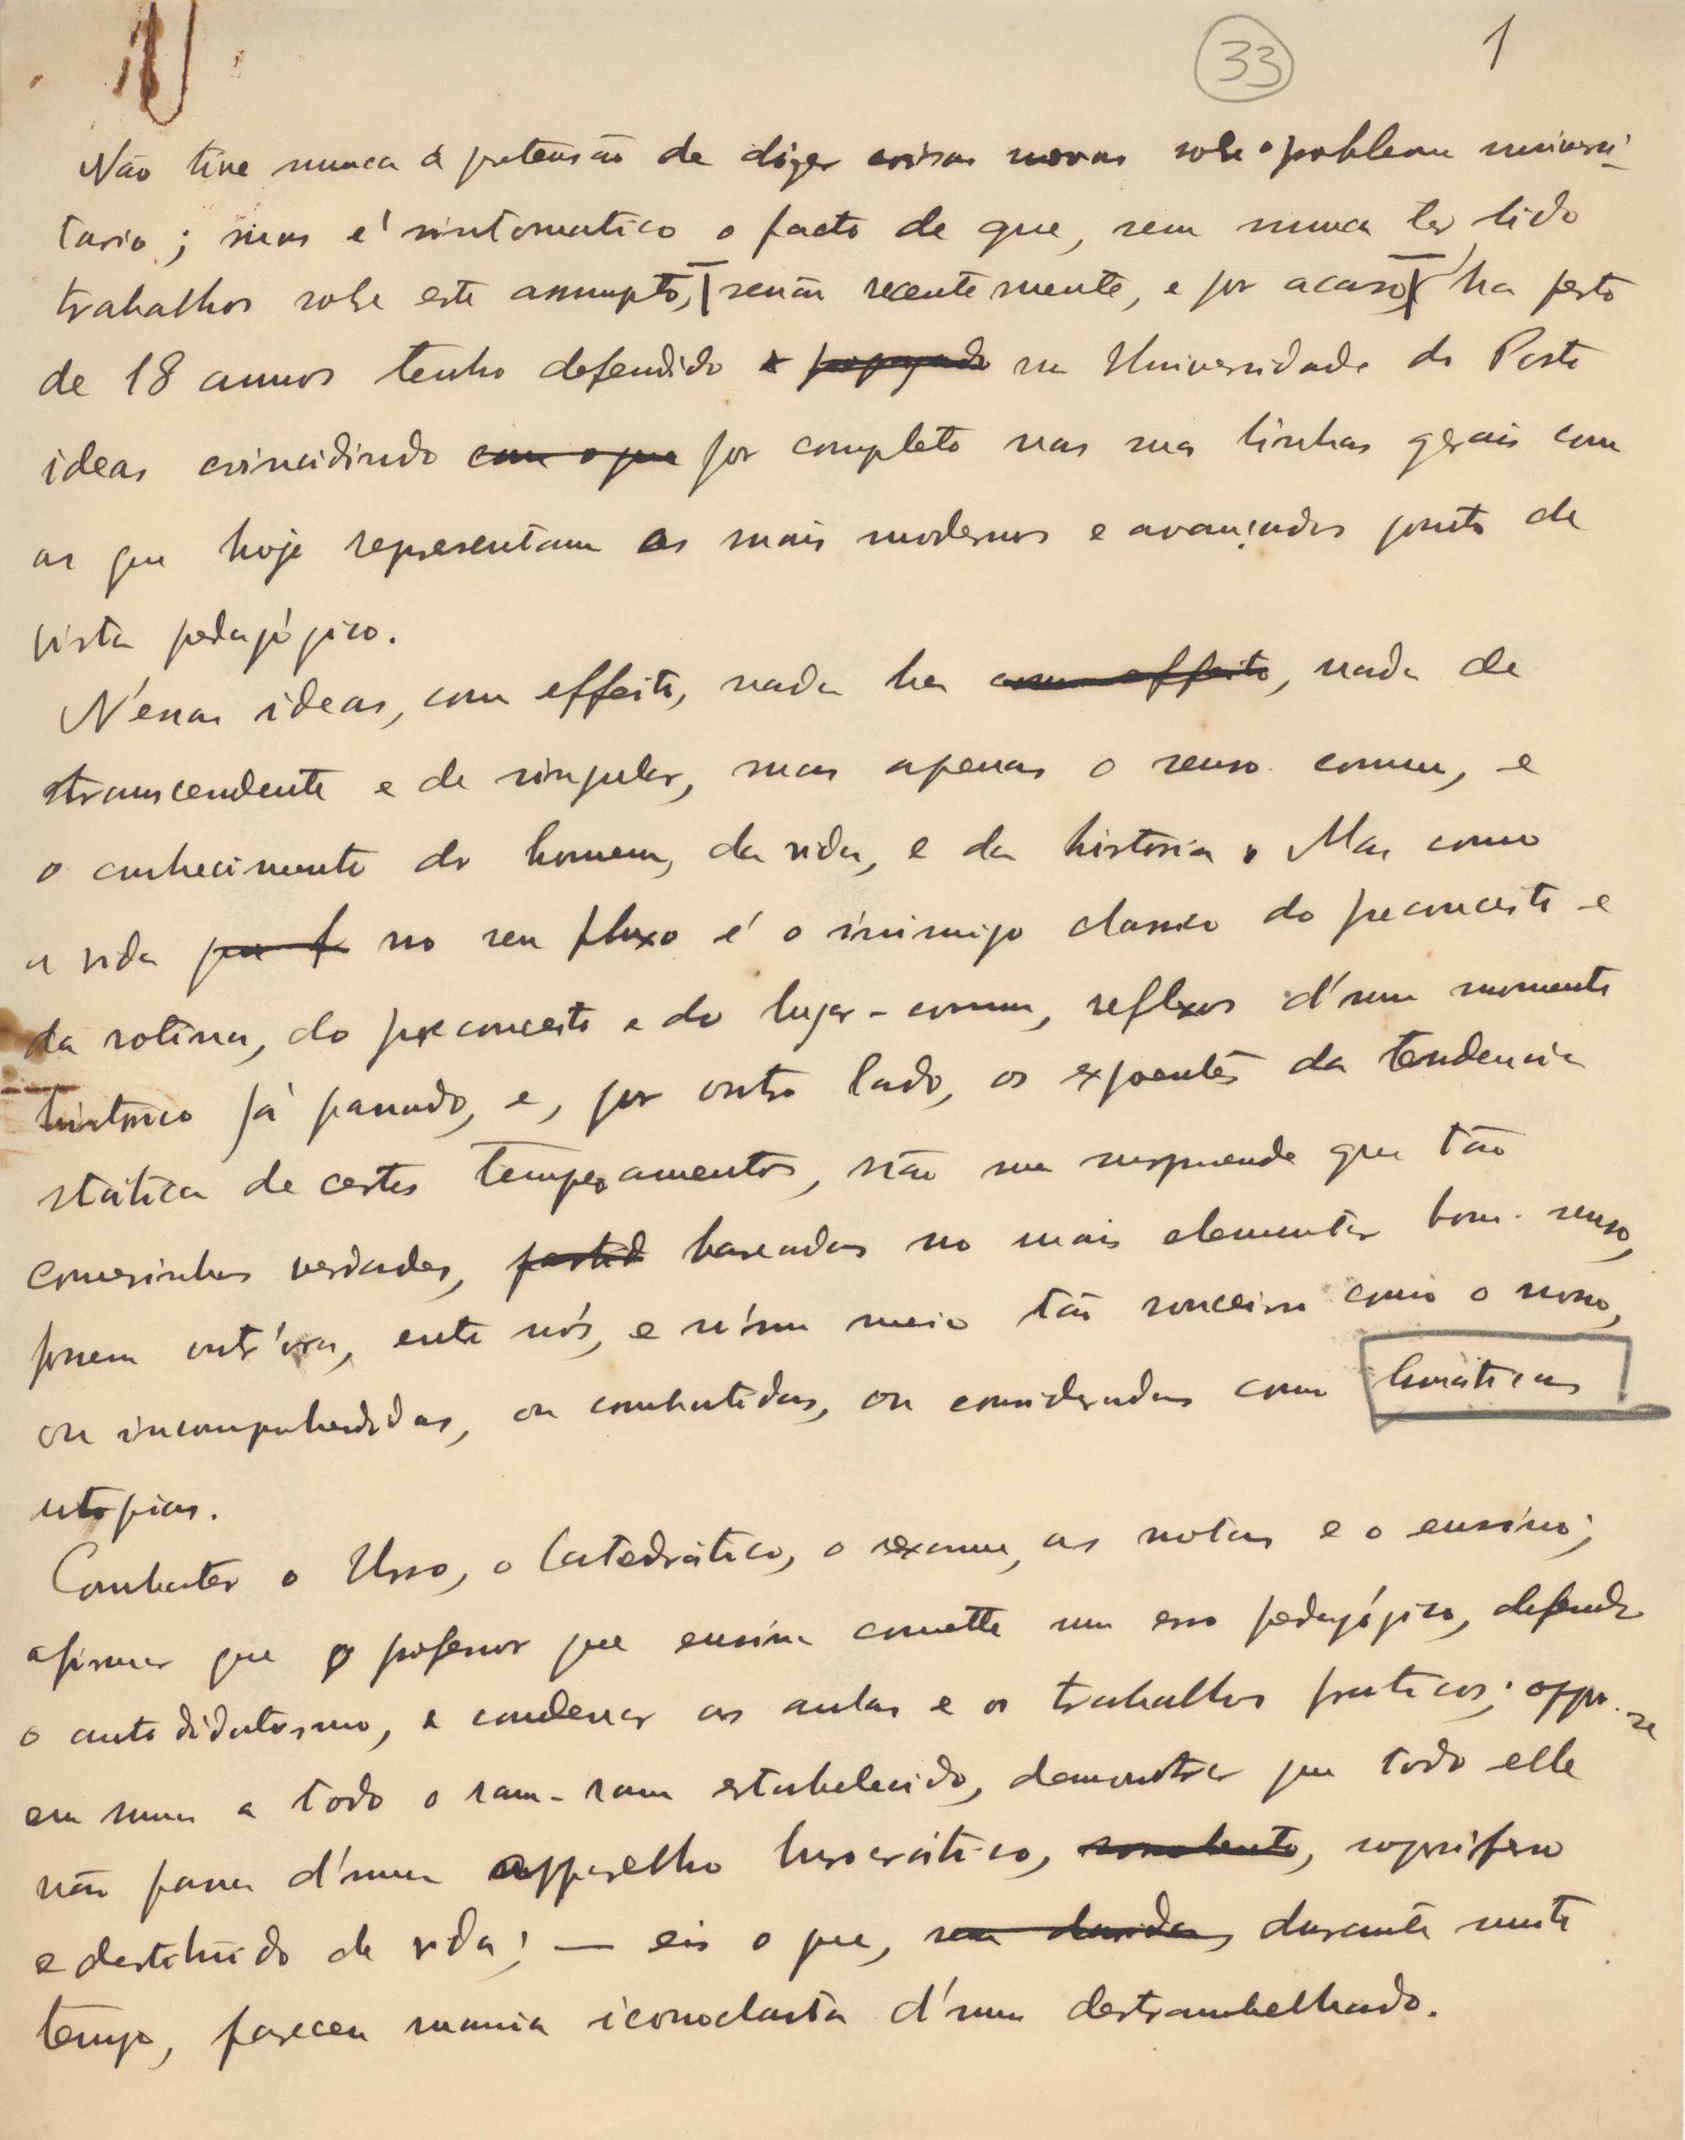 33 1
Não tive nunca a pretensão de dizer coisas novas sobre o problema universi-
tario; mas é sintomatico o facto de que, sem nunca ter lido
trabalhos sobre este assumpto, [senão recentemente, e por acaso] ha perto
de 18 annos tenho defendido e propagado na Universidade do Porto
ideas coincidindo com o que por completo nas suas linhas gerais com
as que hoje representam os mais modernos e avançados pontos de
vista pedagógico.
N'essas ideas, com effeito, nada ha com effeito, nada de
transcendente e de singular, mas apenas o senso comum, e
o conhecimento do homem, da vida, e da historia. Mas como
a vida no seu fluxo é o inimigo classico do preconceito e
da rotina, do preconceito e do lugar-comum, reflexos d'um momento
histórico já passado, e, por outro lado, os expoentes da tendencia
stática de certos temperamentos, não me surprende que tão
comesinhas verdades, baseadas no mais elementar bom-senso,
fossem outr'ora, entre nós, e n'um meio tão ronceiro como o nosso,
ou incomprehendidas, ou combatidas, ou consideradas como lunáticas
utopias.
Combater o Urso, o Catedrático, o exame, as notas e o ensino;
afirmar que o professor que ensina comette um erro pedagógico, defender
o autodidatismo, e condenar as aulas e os trabalhos praticos; oppor-se
em suma a todo o ram-ram estabelecido, demonstrar que todo elle
não passa d'um apparelho burocrático, somnolento, soporifero
e destituido de vida; — eis o que, sem duvida, durante muito
tempo, pareceu mania iconoclasta d'um destrambelhado.